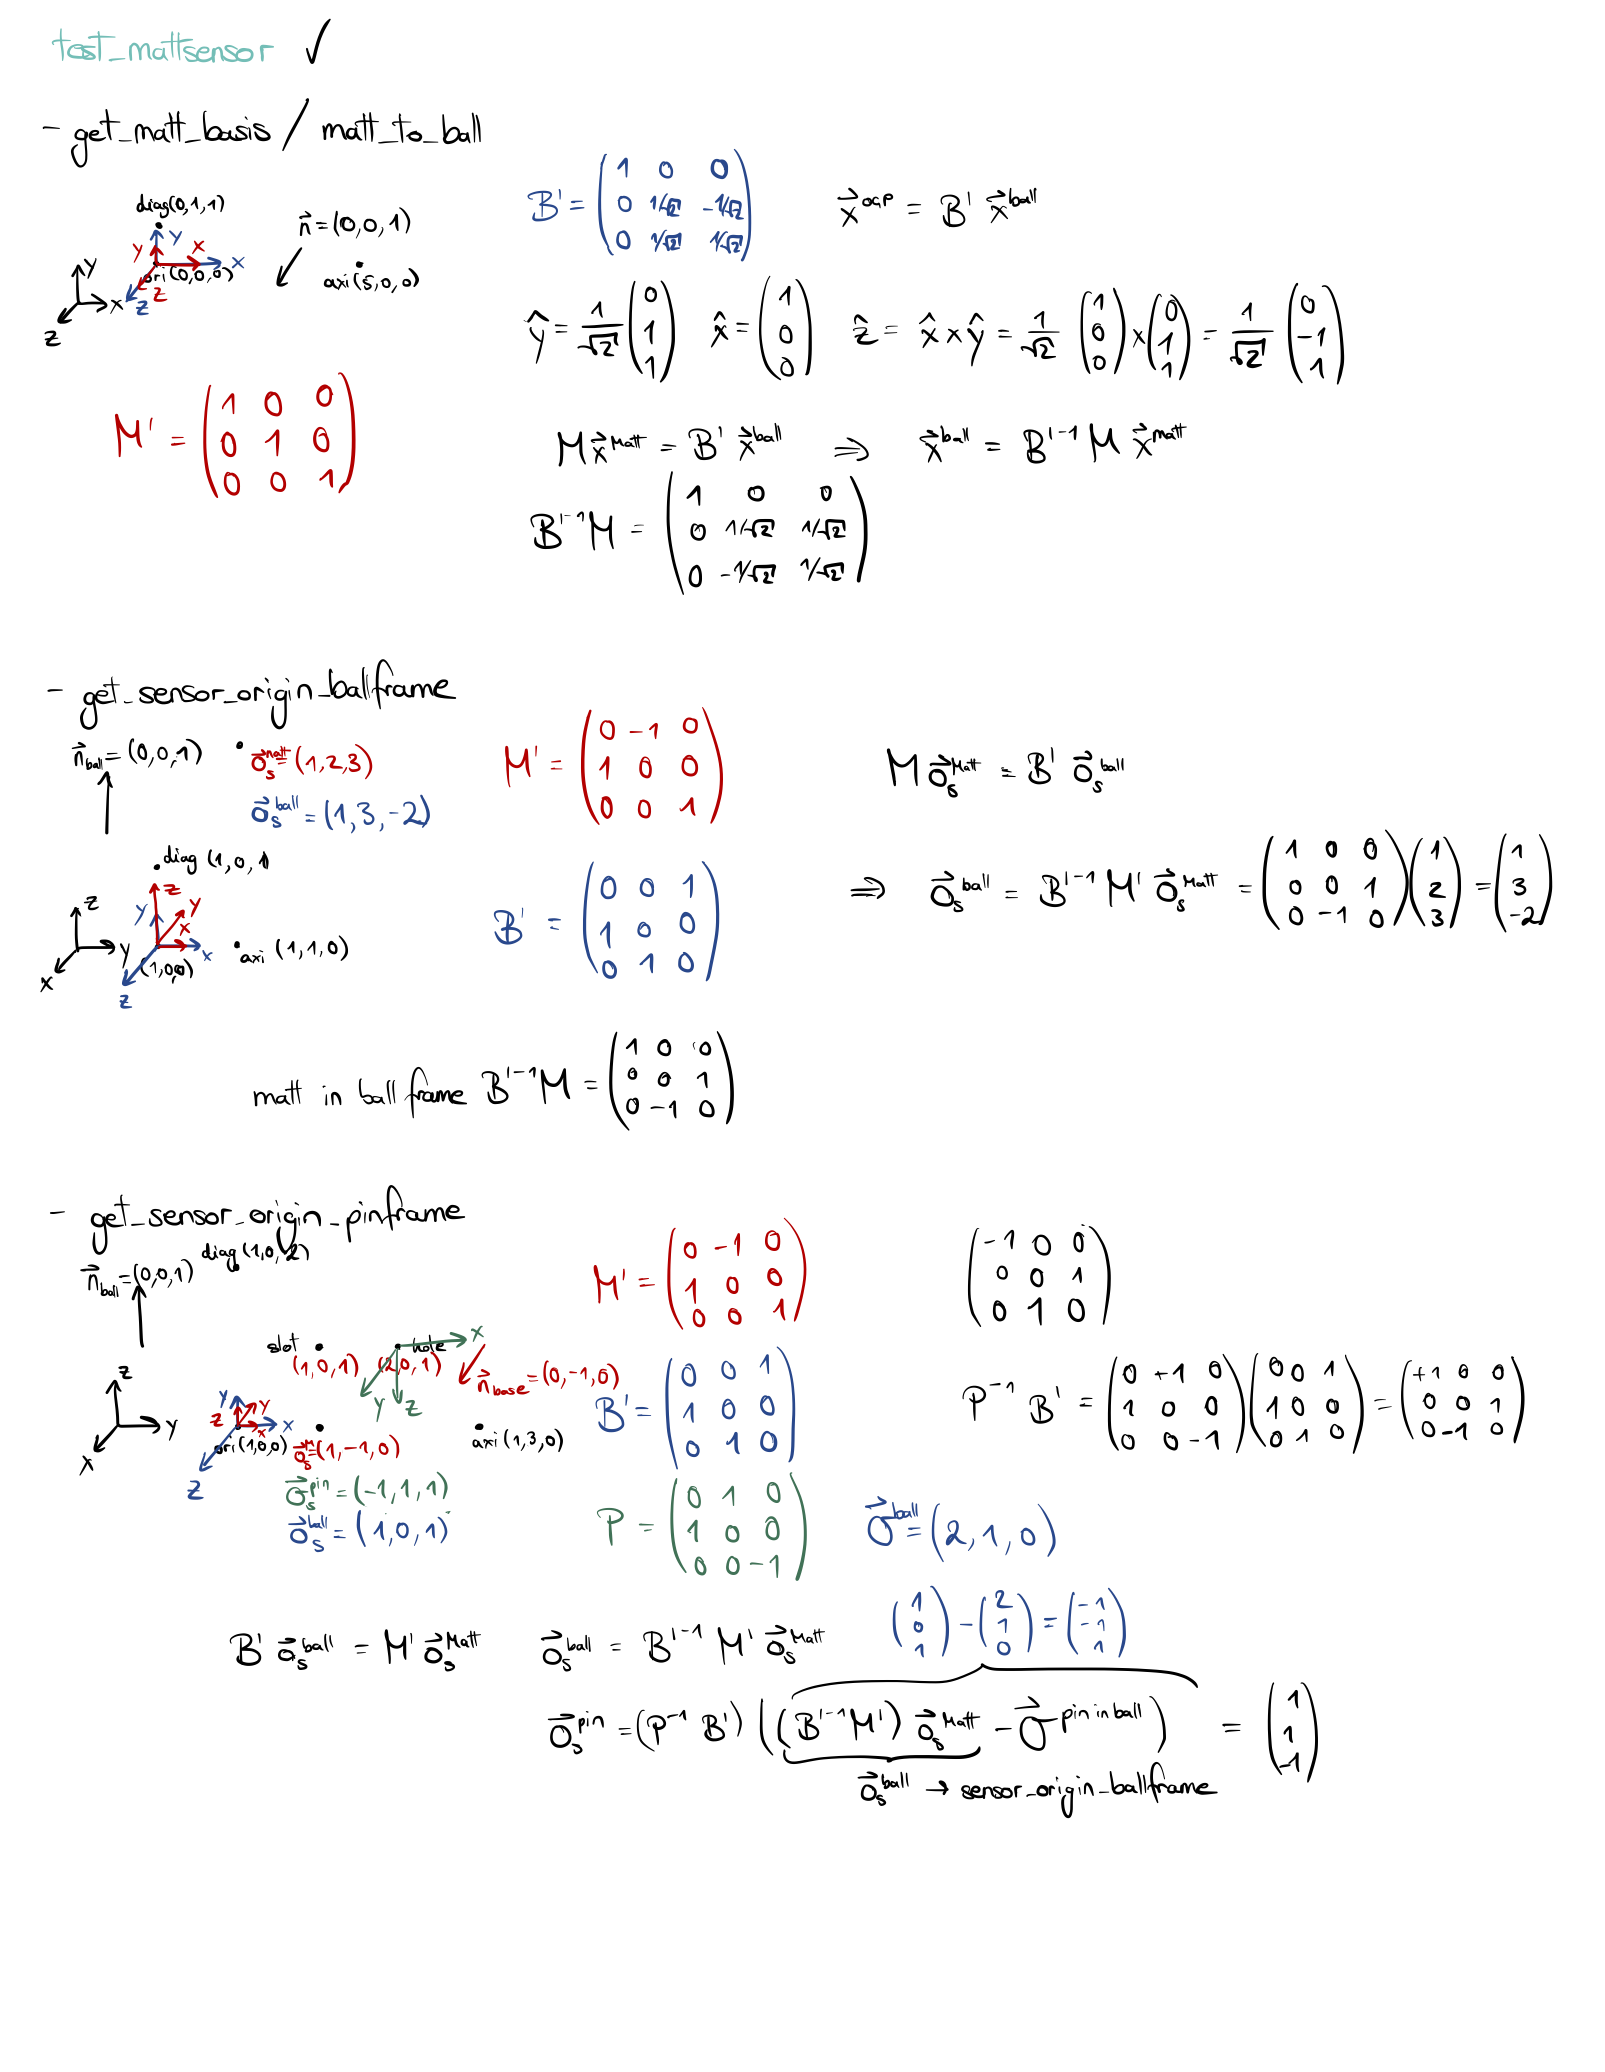 test_mattsensor ✓
- get_matt_basis / matt_to_ball
diag(0,1,1)
n⃗ = (0,0,1)
Y Y X X
ori(0,0,0)
axi(5,0,0)
Z Z
Y X Z
B' = (1 0 0
0 1/√2 -1/√2
0 1/√2 1/√2)
x⃗^OGP = B' x⃗^ball
ŷ = 1/√2 (0 1 1) x̂ = (1 0 0) ẑ = x̂ × ŷ = 1/√2 (1 0 0) × (0 1 1) = 1/√2 (0 -1 1)
M' = (1 0 0
0 1 0
0 0 1)
M x⃗^Matt = B' x⃗^ball ⇒ x⃗^ball = B'^-1 M x⃗^matt
B'^-1 M = (1 0 0
0 1/√2 1/√2
0 -1/√2 1/√2)
- get_sensor_origin_ballframe
n⃗_ball = (0,0,1)
o⃗_s^matt = (1,2,3)
o⃗_s^ball = (1,3,-2)
diag (1,0,1)
Z Y Y X X Z
(1,0,0)
axi (1,1,0)
Z Y X
M' = (0 -1 0
1 0 0
0 0 1)
M o⃗_s^Matt = B' o⃗_s^ball
B' = (0 0 1
1 0 0
0 1 0)
⇒ o⃗_s^ball = B'^-1 M' o⃗_s^Matt = (1 0 0
0 0 1
0 -1 0) (1 2 3) = (1 3 -2)
matt in ballframe B'^-1 M = (1 0 0
0 0 1
0 -1 0)
- get_sensor_origin_pinframe
diag (1,0,2)
n⃗_ball = (0,0,1)
slot
(1,0,1)
hole
(2,0,1)
X Y Z
n⃗_base = (0,-1,0)
Z Y X
Y Y Z X X Z
ori(1,0,0)
o⃗_s^M = (1,-1,0)
axi (1,3,0)
o⃗_s^pin = (-1,1,1)
o⃗_s^ball = (1,0,1)
M' = (0 -1 0
1 0 0
0 0 1)
(-1 0 0
0 0 1
0 1 0)
B' = (0 0 1
1 0 0
0 1 0)
P^-1 B' = (0 +1 0
1 0 0
0 0 -1) (0 0 1
1 0 0
0 1 0) = (+1 0 0
0 0 1
0 -1 0)
P = (0 1 0
1 0 0
0 0 -1)
O⃗^ball = (2,1,0)
(1 0 1) - (2 1 0) = (-1 -1 1)
B' o⃗_s^ball = M' o⃗_s^Matt o⃗_s^ball = B'^-1 M' o⃗_s^Matt
o⃗_s^pin = (P^-1 B') ((B'^-1 M') o⃗_s^Matt - O⃗^pin in ball) = (1 1 -1)
o⃗_s^ball → sensor_origin_ballframe